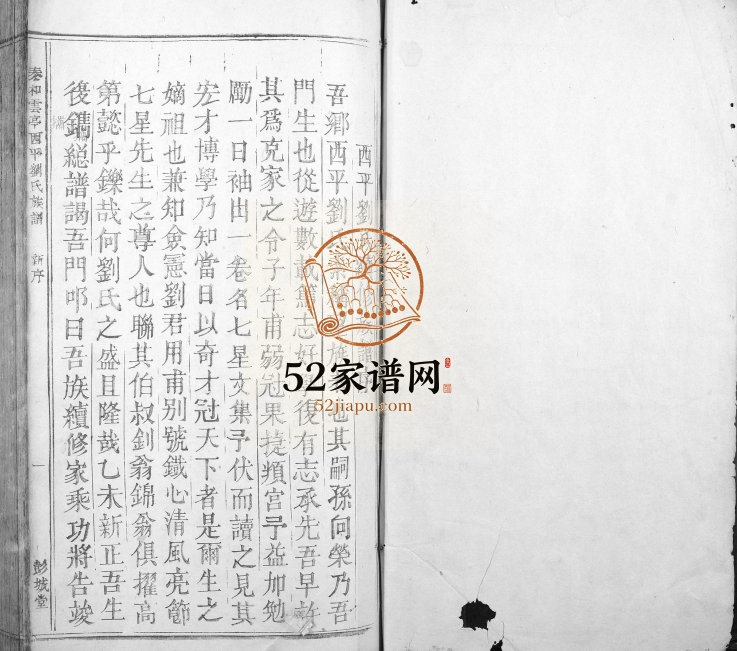 西平劉
吾鄉西平劉其嗣孫向榮乃吾
門生也從遊數載篤志好復有志承先吾早
其為克家之令子年甫弱冠果捷頖宮予益加勉
勵一日袖出一卷名七星文集予伏而讀之見其
宏才博學乃知當日以奇才冠天下者是爾生之
嫡祖也兼知僉憲劉君用甫別號鐵心清風亮節
七星先生之尊人也聯其伯叔釗翁錦翁俱擢高
第懿乎鑠哉何劉氏之盛且隆哉乙未新正吾生
復鐫總譜謁吾門叩曰吾族續修家乘功將告竣
泰和雲亭西平劉氏族譜 新序 一 彭城堂
52家谱网
52jiapu.com